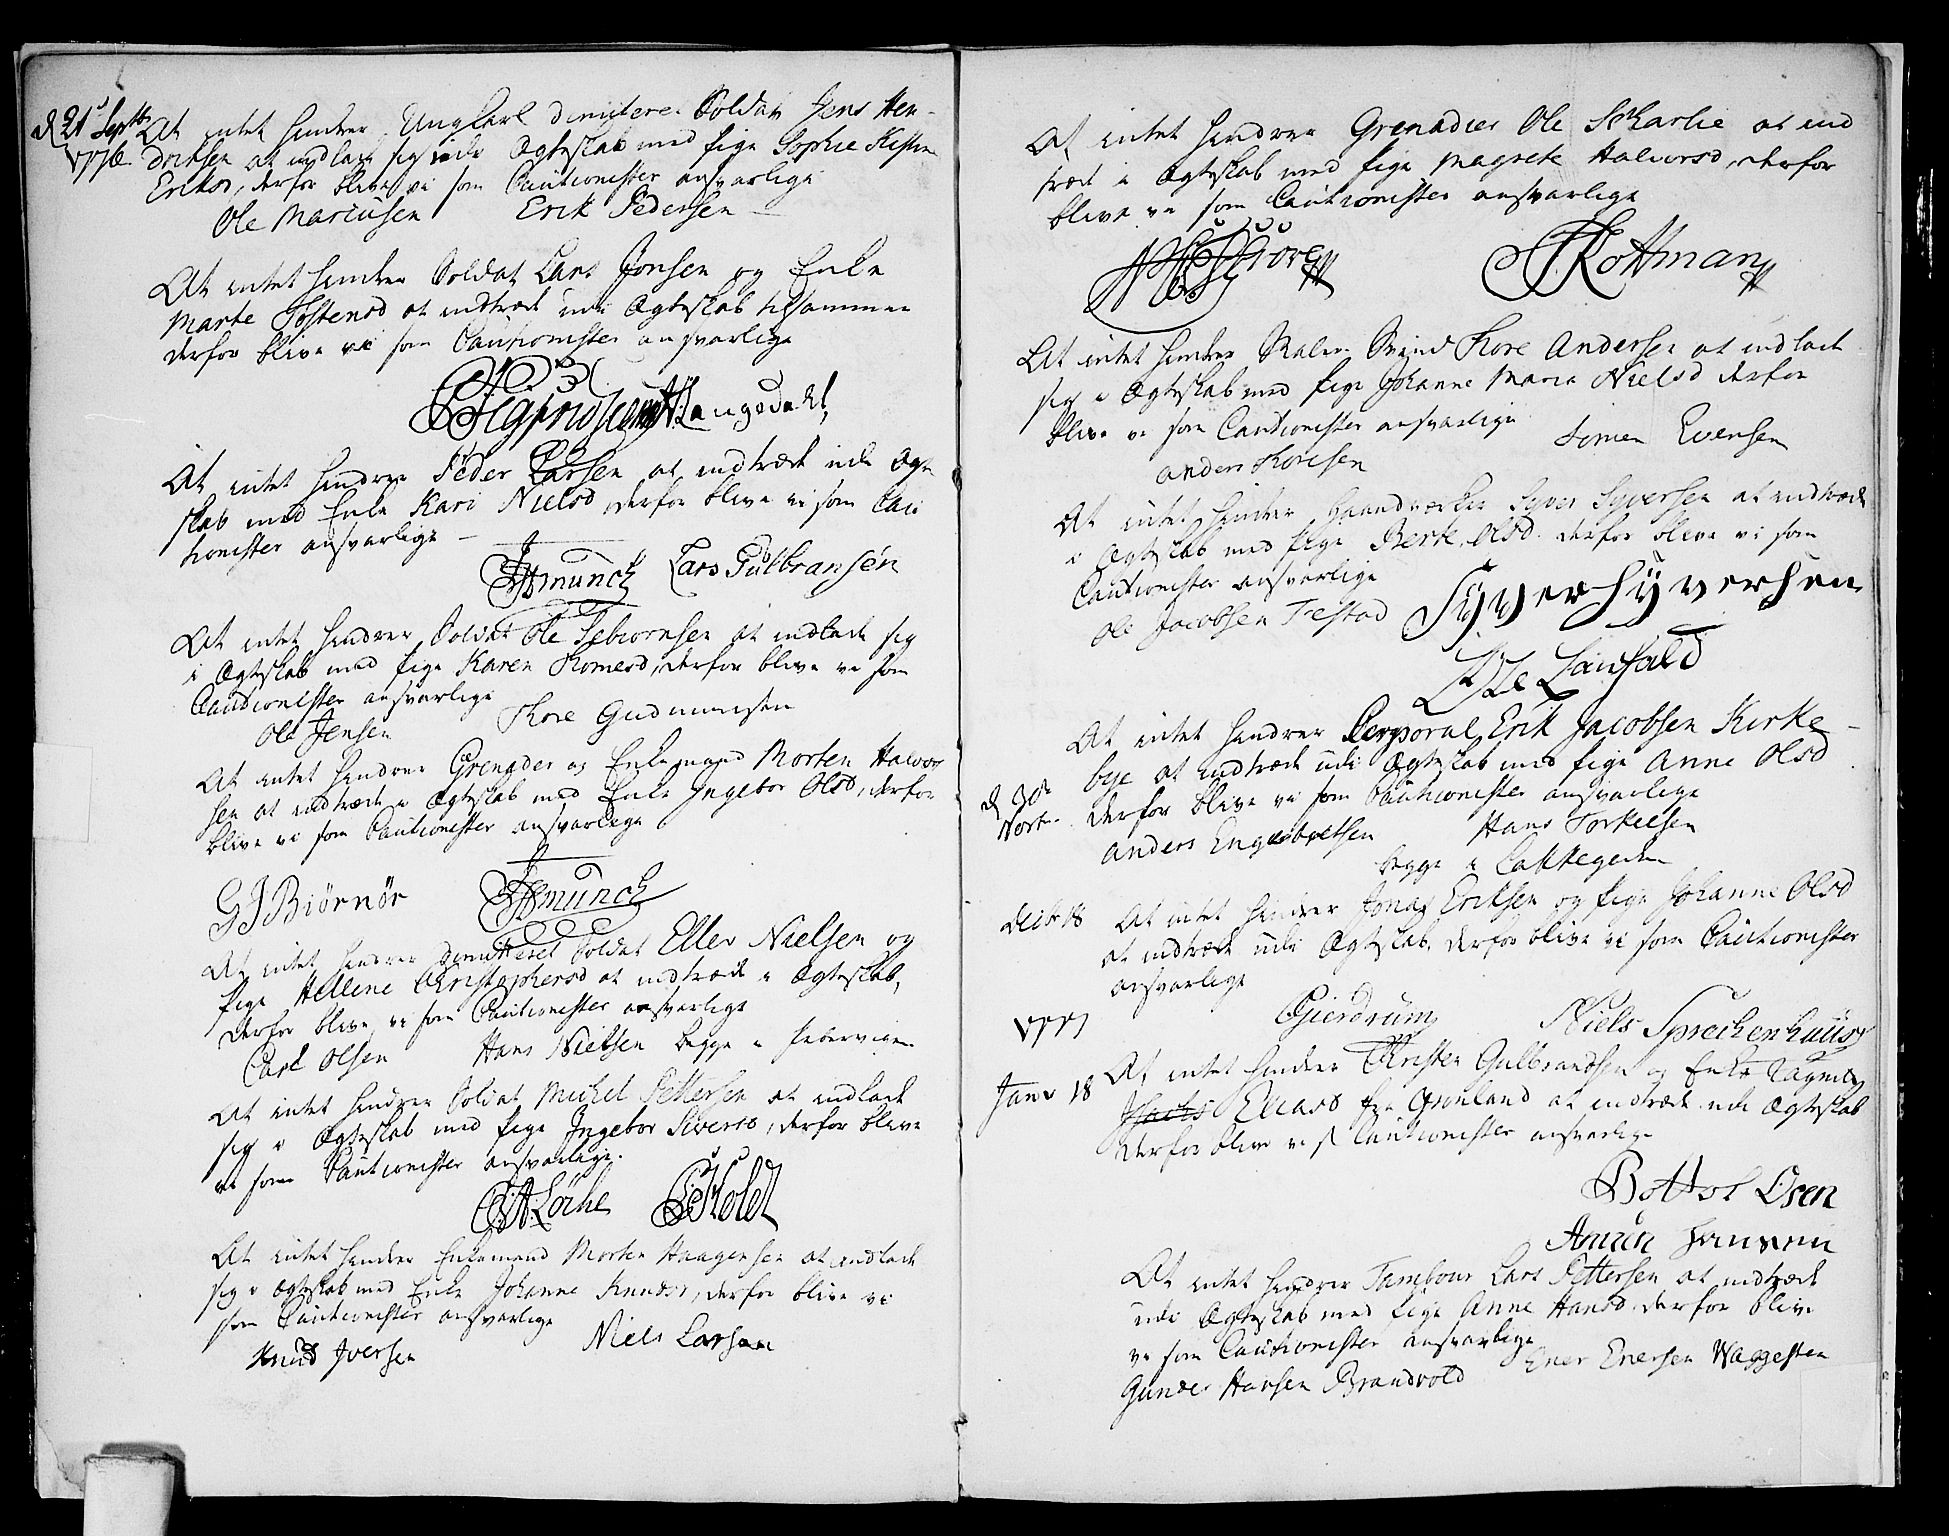 d 21 Septbr At intet hindrer Ungkarl dimitere Soldat Jens Hen-
1776 dricksen at indlade sig udi Ægteskab med Pige Sophie
Eriksd, derfor blive vi som Cautionister ansvarlige
Ole Mariusen Erik Pedersen
At intet hindrer Soldat Lars Jonsen og Enke
Marte Tostensd at indtræde udi Ægteskab tilsammen
derfor blive vi som Cautionister ansvarlige
Langedahl
At intet hindrer Peder Larsen at indtræde udi Ægte
skab med Enke Kari Nielsd, derfor blive vi som Cau
tionister ansvarlige
Munch Lars Gulbransen
At intet hindrer Soldat Ole Tebiørnsen at indlade sig
i Ægteskab med Pige Karen Tomesd, derfor blive vi som
Cautionister ansvarlige
Ole Jensen Thore Gudmunsen
At intet hindrer Grenader og Enkemand Morten Halvor
sen at indtræde i Ægteskab med Enke Ingebor Olsd, derfor
blive vi som Cautionister ansvarlige
G J Biørnør Munch
At intet hindrer dimitteret Soldat Eller Nielsen og
Pige Hellene Christophersd at indtræde i Ægteskab,
derfor blive vi som Cautionister ansvarlige
Carl Olsen Hans Nielsen begge i Pebervigen
At intet hindrer Soldat Michel Pettersen at indlade
sig i Ægteskab med Pige Ingebor Siversd, derfor blive
vi som Cautionister ansvarlige.
Holdt
At intet hindrer Enkemand Morten Haagensen at indlade
sig i Ægteskab med Enke Johanne Knudsd, derfor blive vi
som Cautionister ansvarlige
Knud Iversen Niels Larsen
At intet hindrer Grenadier Ole Scharlie at ind
træde i Ægteskab med Pige Magrete Halvorsd, derfor
blive vi som Cautionister ansvarlige
Rottman
At intet hindrer Maler Svend Thore Andersen at indlade
sig i Ægteskab med Pige Johanne Maria Nielsd derfor
blive vi som Cautionister ansvarlige
Simen Evensen
Anders Thoresen
At intet hindrer Haandværker Syver Syversen at indtræde
i Ægteskab med Pige Berte Olsd derfor blive vi som
Cautionister ansvarlige
Ole Jacobsen Trestad Syver Syversen
Ole Laufald
At intet hindrer Corporal Erik Jacobsen Kirke-
bye at indtræde udi Ægteskab med Pige Anne Olsd
d 30te Novbr derfor blive vi som Cautionister ansvarlige
Anders Engebretsen Hans Torkelsen
begge i Lakkegaden
Decbr 18 At intet hindrer Jonas Eriksen og Pige Johanne Olsd
at indtræde udi Ægteskab, derfor blive vi som Cautionister
ansvarlige
1777 Gierdrum Niels Spreckenhuus
Janv 18 At intet hindrer Christen Gulbrandsen og Enke
Eliasd fra Grønland at indtræde udi Ægteskab
derfor blive vi s Cautionister ansvarlige
Bottol Osen
Amun Hansen
At intet hindrer Tambour Lars Pettersen at indtræde
udi Ægteskab med Pige Anne Hansd derfor blive
vi som Cautionister ansvarlige
Gunder Hansen Brandvold Ener Enersen Waggesten